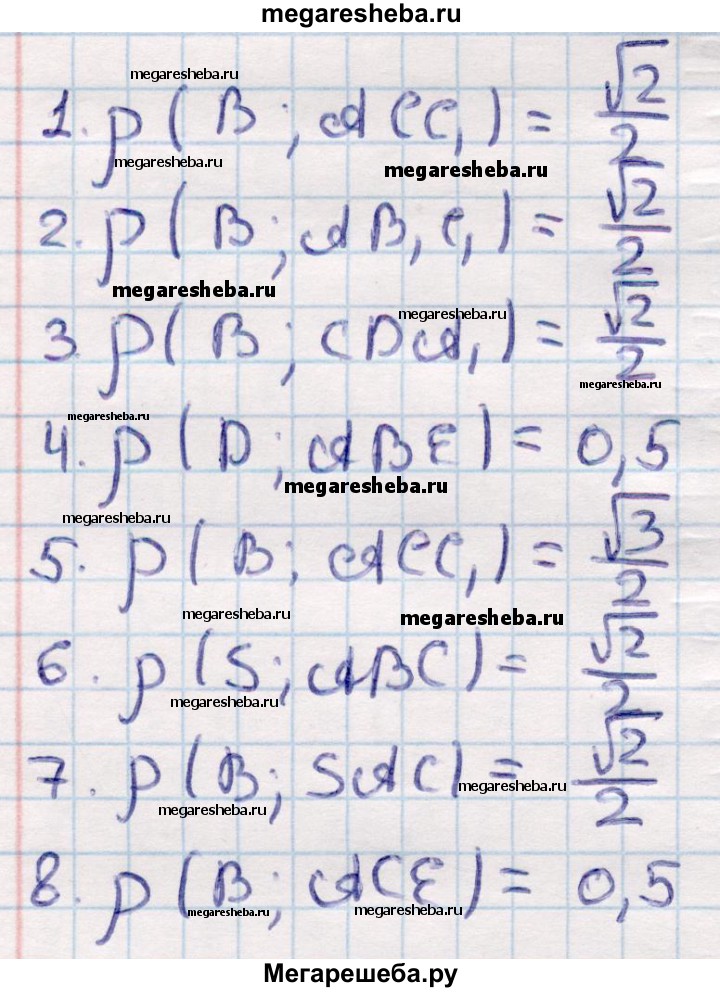 megaresheba.ru
megaresheba.ru
1. ρ(B; ACC₁) = √2/2
megaresheba.ru
megaresheba.ru
2. ρ(B; AB₁C₁) = √2/2
megaresheba.ru
megaresheba.ru
3. ρ(B; CDA₁) = √2/2
megaresheba.ru
megaresheba.ru
4. ρ(D; ABE) = 0,5
megaresheba.ru
megaresheba.ru
5. ρ(B; ACC₁) = √3/2
megaresheba.ru
megaresheba.ru
6. ρ(S; ABC) = √2/2
megaresheba.ru
7. ρ(B; SAC) = √2/2
megaresheba.ru
megaresheba.ru
8. ρ(B; ACE) = 0,5
megaresheba.ru
megaresheba.ru
Мегарешеба.ру